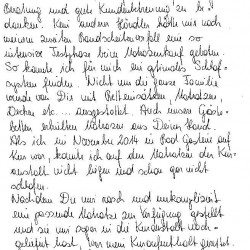 Beratung und gute Kundenbetreuung zu be-
danken! Kein anderer Händler hätte mir nach
meinem zweiten Bandscheibenvorfall eine so
intensive Testphase beim Matratzenkauf geboten.
So konnte ich für mich ein optimales Schlaf-
system finden. Nicht nur die ganze Familie
wurde von Dir mit Betteinsätzen, Matratzen,
Decken etc.... ausgestattet. Auch unsere Gäste-
betten erhielten Matratzen aus Deiner Hand.
Als ich im November 2014 in Bad Gastein auf
Kur war, konnte ich auf den Matratzen der Kur-
anstalt nicht liegen und schon gar nicht
schlafen.
Nachdem Du mir rasch und unkompliziert
eine passende Matratze zur Verfügung gestellt
und sie mir sogar in die Kuranstalt nach-
geliefert hast, war mein Kuraufenthalt gerettet.